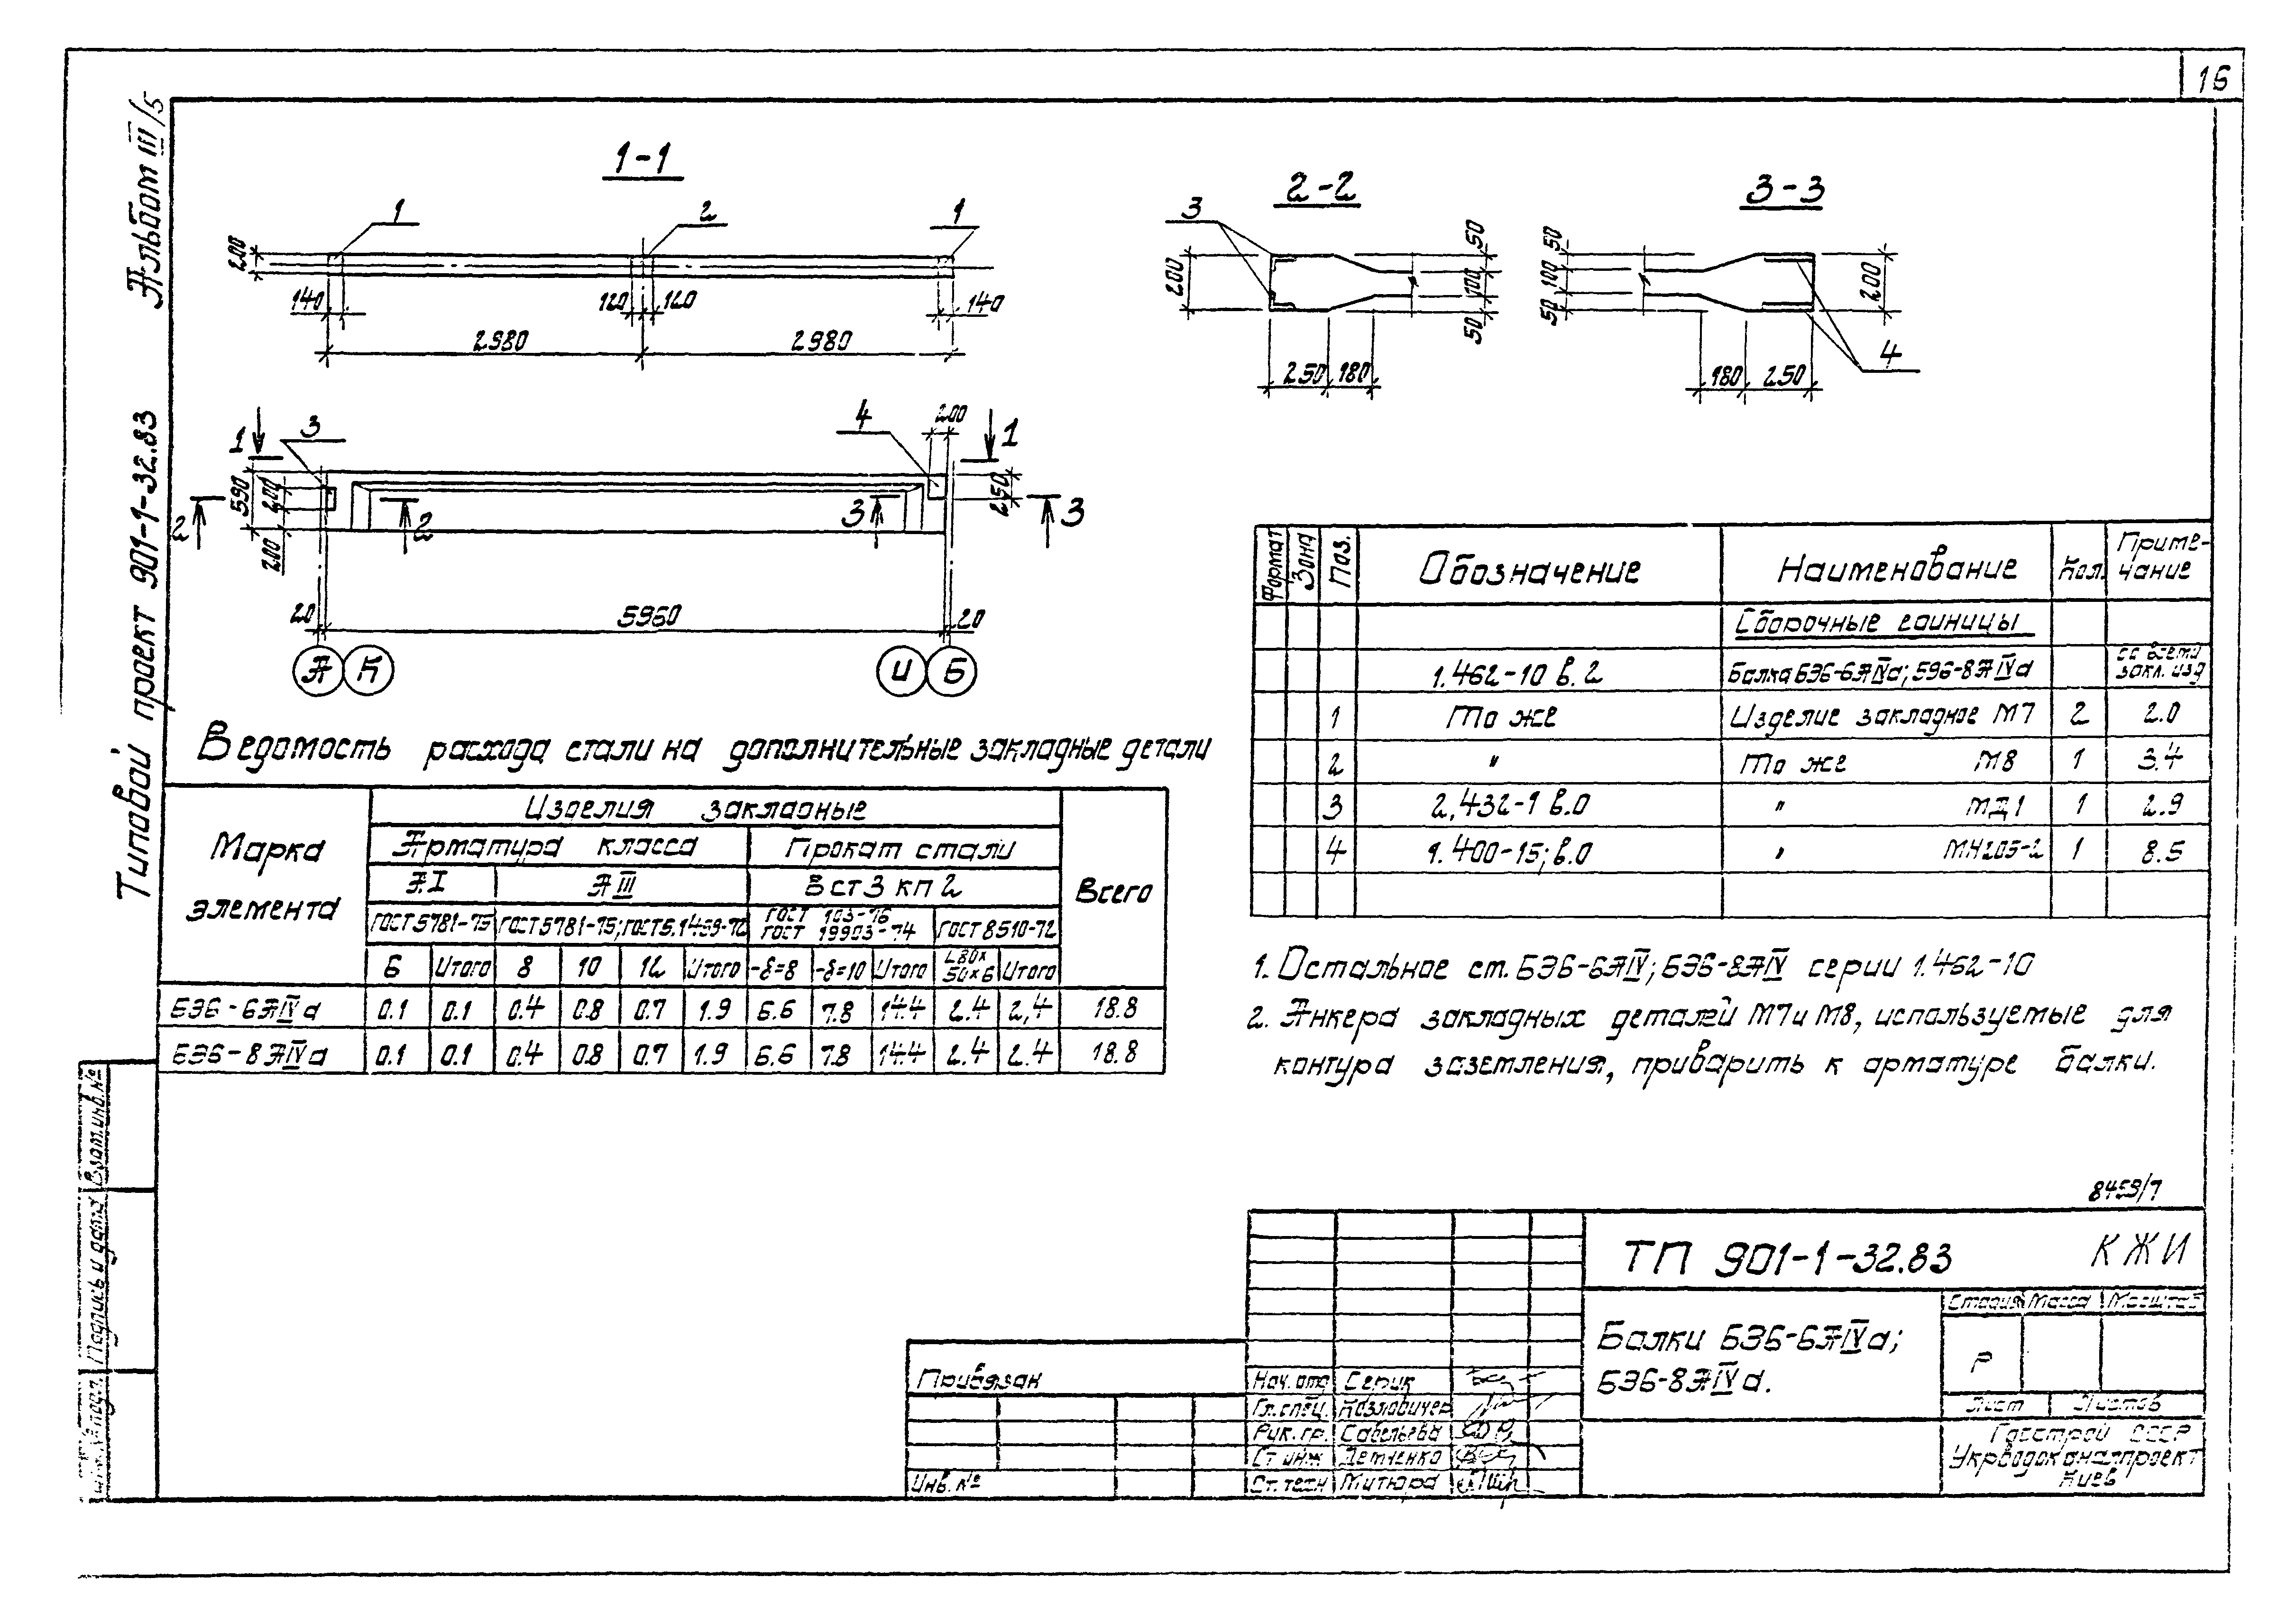 16
Альбом III/5
Типовой проект 901-1-32.83
1-1
1 2 1
200
140 120 120 140
2980 2980
2-2
3
200
50
100
50
250 180
3-3
50
100
50
200
180 250
4
1 3 4 200 1
590 200 200
250
2 2 3 3
20 5960 20
А К И Б
Формат Зона Поз. Обозначение Наименование Кол. Приме-
чание
Сборочные единицы
1.462-10 в.2 Балка БЭ6-6АIVа; БЭ6-8АIVа со всеми
закл. изд
1 То же Изделие закладное М7 2 2.0
2 " То же М8 1 3.4
3 2,432-1 в.0 " МД1 1 2.9
4 1.400-15; в.0 " МН205-2 1 8.5
Ведомость расхода стали на дополнительные закладные детали
Марка
элемента
Изделия закладные
Всего
Арматура класса Прокат стали
АI АIII Вст3 кп2
ГОСТ 5781-75 ГОСТ 5781-75; ГОСТ 5.1459-72 ГОСТ 103-76
ГОСТ 19903-74 ГОСТ 8510-72
6 Итого 8 10 12 Итого -δ=8 -δ=10 Итого L80×
50×6 Итого
БЭ6-6АIVа 0.1 0.1 0.4 0.8 0.7 1.9 6.6 7.8 14.4 2.4 2,4 18.8
БЭ6-8АIVа 0.1 0.1 0.4 0.8 0.7 1.9 6.6 7.8 14.4 2.4 2.4 18.8
1. Остальное ст. БЭ6-6АIV; БЭ6-8АIV серии 1.462-10
2. Анкера закладных деталей М7 и М8, используемые для
контура заземления, приварить к арматуре балки.
8459/7
ТП 901-1-32.83 КЖИ
Балки БЭ6-6АIVа;
БЭ6-8АIVа.
Стадия Масса Масштаб
Р
Лист Листов
Госстрой СССР
Укрводоканалпроект
Киев
Нач. отд Серик
Гл. спец. Козловичер
Рук. гр. Савельева
Ст инж Детченко
Ст. техн Митюра
Привязан
Инв. №
Взам. инв. №
Подпись и дата
Инв. № подл.